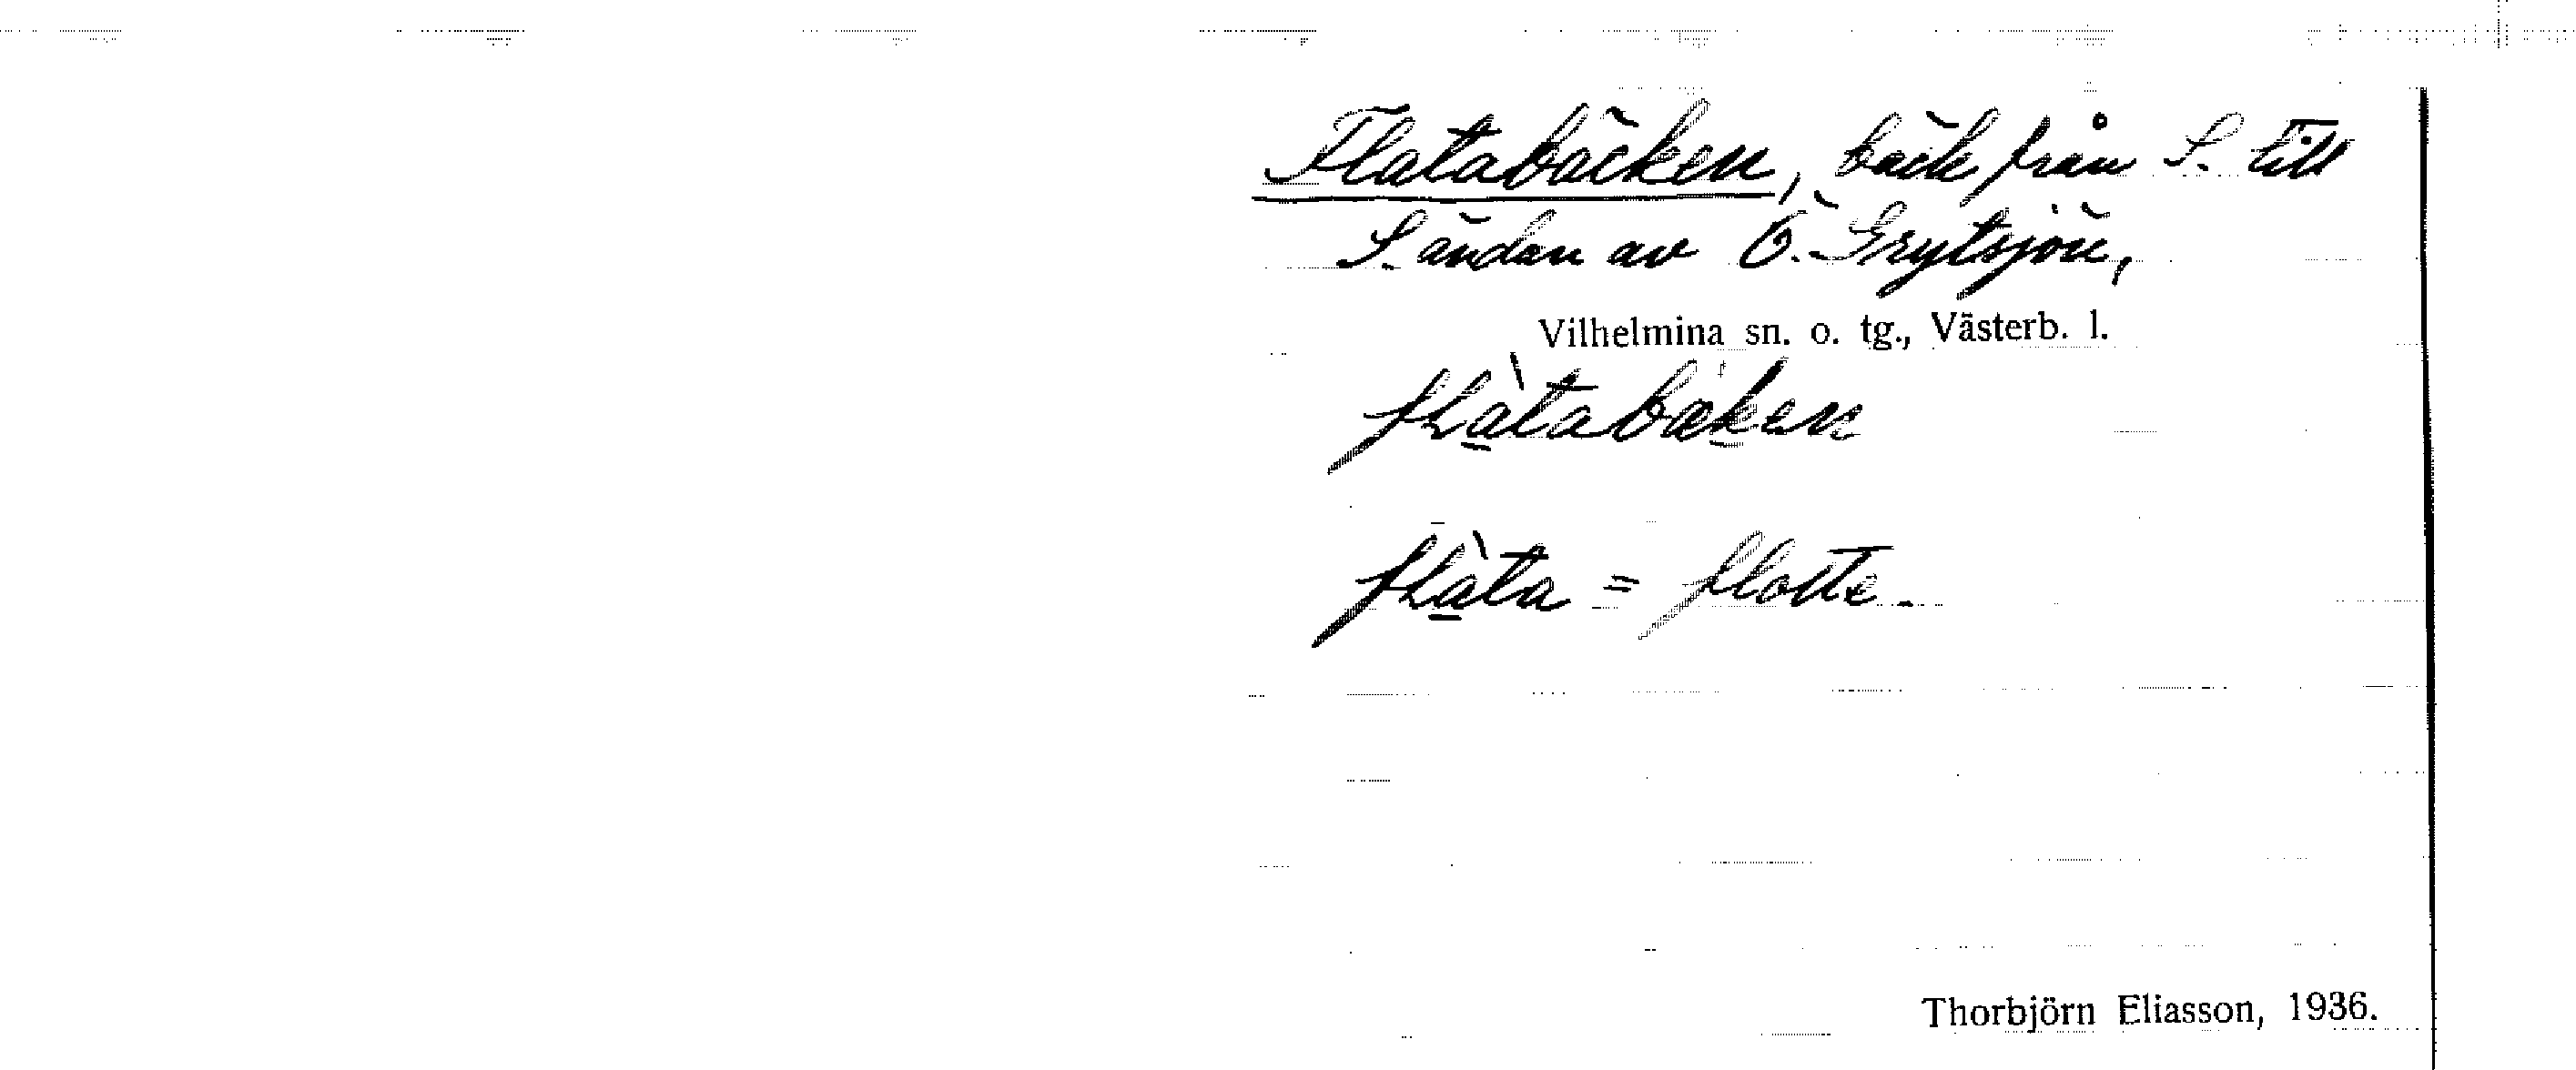 Flatabäcken, bäck från S. till
S. ändan av Ö. Grytsjön,
Vilhelmina sn. o. tg., Västerb. l.
flàtabæken
flàta = flotte.
Thorbjörn Eliasson, 1936.